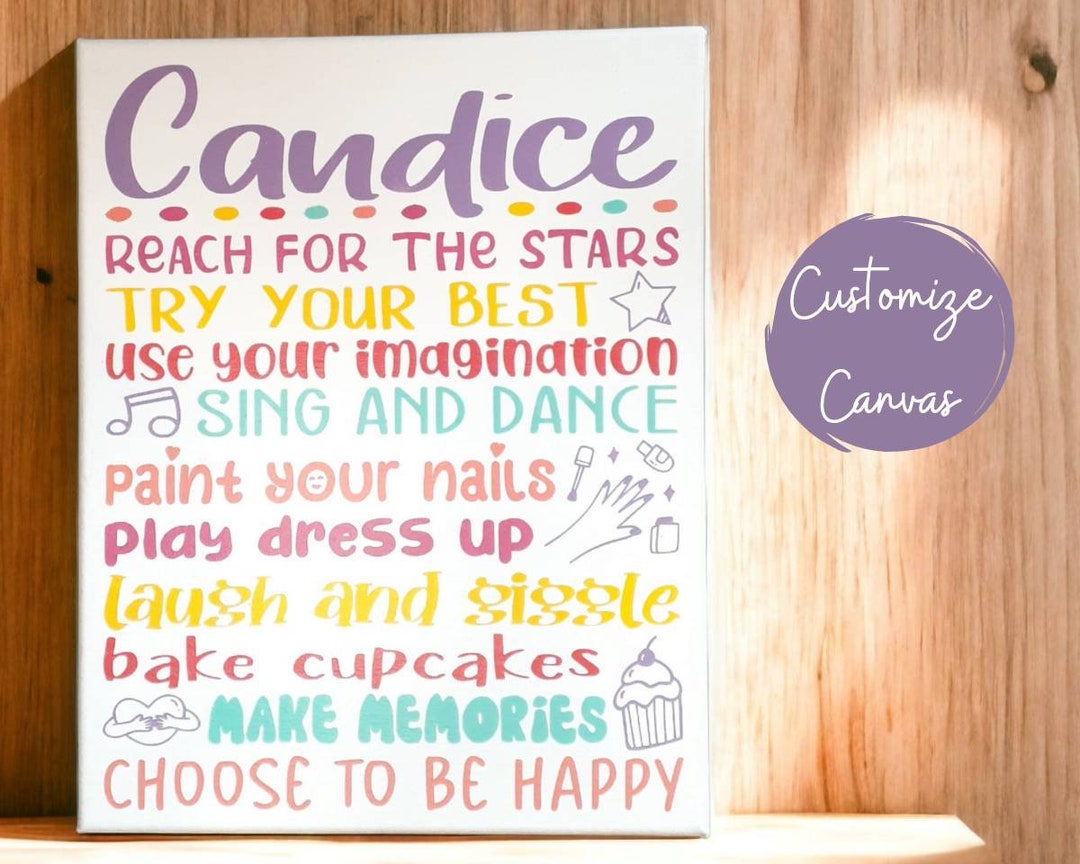 Candice
REACH FOR THE STARS
TRY YOUR BEST
use your imagination
SING AND DANCE
paint your nails
play dress up
laugh and giggle
bake cupcakes
MAKE MEMORIES
CHOOSE TO BE HAPPY
Customize
Canvas